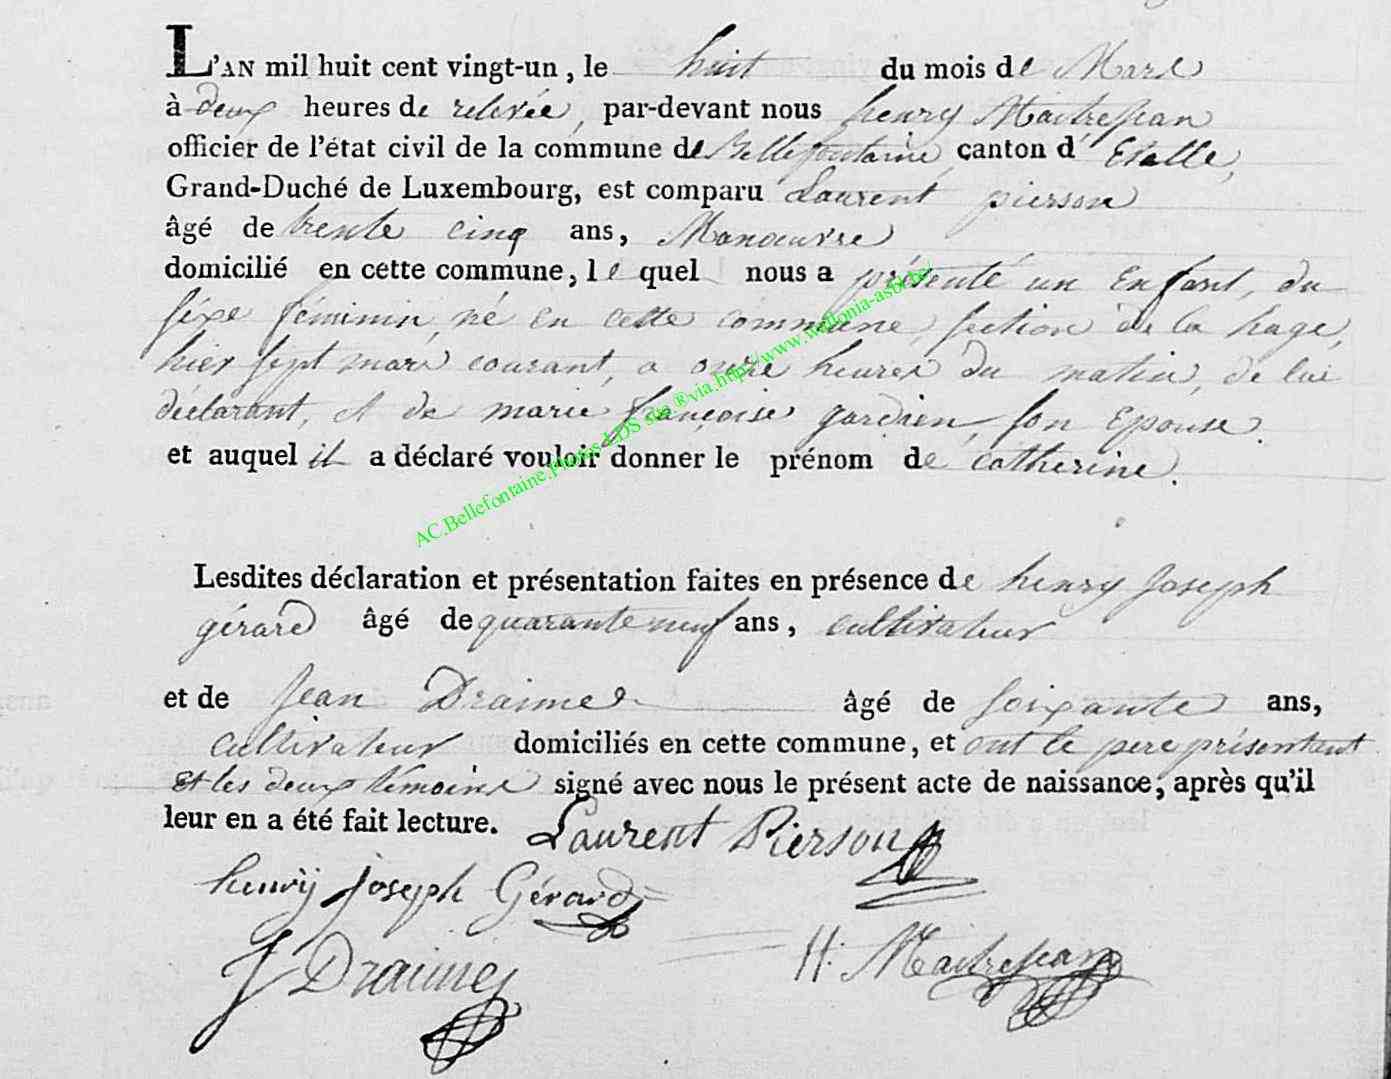 L'AN mil huit cent vingt-un, le huit du mois de Mars
à deux heures de relevée, par-devant nous henry Maitrejean
officier de l'état civil de la commune de Bellefontaine, canton d' Etalle,
Grand-Duché de Luxembourg, est comparu Laurent pierson
âgé de trente cinq ans, Manoeuvre
domicilié en cette commune, le quel nous a présenté un Enfant, du
sexe féminin, né en cette commune, section de la hage,
hier sept mars courant, a onze heures du matin, de lui
déclarant, et de marie françoise gardien, son Epouse.
et auquel il a déclaré vouloir donner le prénom de catherine.
AC.Bellefontaine.Photos LDS site ®via.http://www.wallonia-asbl.be/
Lesdites déclaration et présentation faites en présence de henry Joseph
gérard âgé de quarante neuf ans, cultivateur
et de Jean Draime âgé de soixante ans,
cultivateur domiciliés en cette commune, et ont le pere présentant
et les deux témoins signé avec nous le présent acte de naissance, après qu'il
leur en a été fait lecture. Laurent Pierson
henrÿ Joseph Gérard
J Draime H. Maitrejean